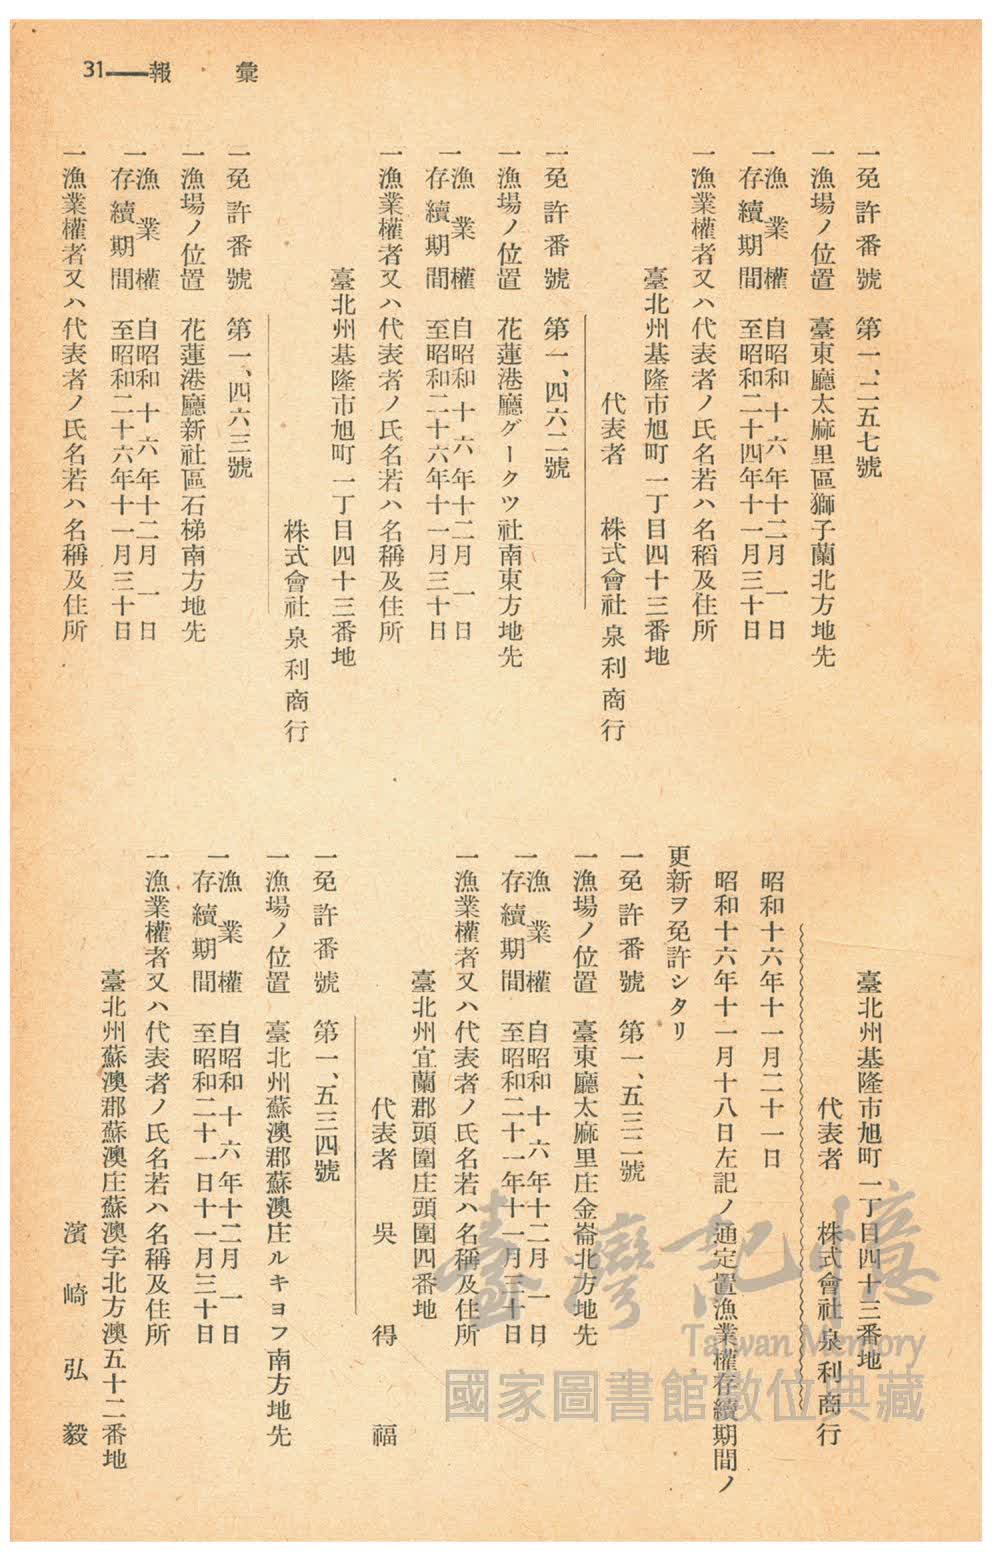 彙報——31
一免許番號 第一、二五七號
一漁場ノ位置 臺東廳太麻里區獅子蘭北方地先
一漁業權存續期間 自昭和十六年十二月一日
至昭和二十四年十一月三十日
一漁業權者又ハ代表者ノ氏名若ハ名稻及住所
臺北州基隆市旭町一丁目四十三番地
代表者 株式會社泉利商行
一免許番號 第一、四六二號
一漁場ノ位置 花蓮港廳グークツ社南東方地先
一漁業權存續期間 自昭和十六年十二月一日
至昭和二十六年十一月三十日
一漁業權者又ハ代表者ノ氏名若ハ名稱及住所
臺北州基隆市旭町一丁目四十三番地
株式會社泉利商行
一免許番號 第一、四六三號
一漁場ノ位置 花蓮港廳新社區石梯南方地先
一漁業權存續期間 自昭和十六年十二月一日
至昭和二十六年十一月三十日
一漁業權者又ハ代表者ノ氏名若ハ名稱及住所
臺北州基隆市旭町一丁目四十三番地
代表者 株式會社泉利商行
昭和十六年十一月二十一日
昭和十六年十一月十八日左記ノ通定置漁業權存續期間ノ
更新ヲ免許シタリ
一免許番號 第一、五三二號
一漁場ノ位置 臺東廳太麻里庄金崙北方地先
一漁業權存續期間 自昭和十六年十二月一日
至昭和二十一年十一月三十日
一漁業權者又ハ代表者ノ氏名若ハ名稱及住所
臺北州宜蘭郡頭圍庄頭圍四番地
代表者 吳得福
一免許番號 第一、五三四號
一漁場ノ位置 臺北州蘇澳郡蘇澳庄ルキヨフ南方地先
一漁業權存續期間 自昭和十六年十二月一日
至昭和二十一日十一月三十日
一漁業權者又ハ代表者ノ氏名若ハ名稱及住所
臺北州蘇澳郡蘇澳庄蘇澳字北方澳五十二番地
濱崎弘毅
臺灣記憶
Taiwan Memory
國家圖書館數位典藏